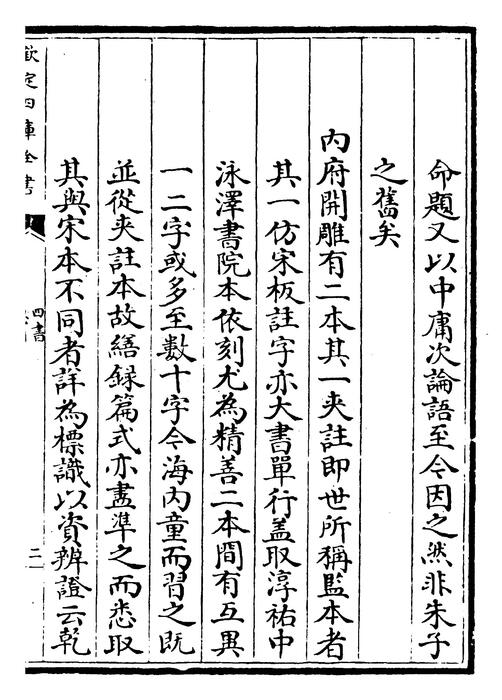 命題又以中庸次論語至今因之然非朱子
之舊矣
內府開雕有二本其一夾註即世所稱監本者
其一仿宋板註字亦大書單行蓋取淳祐中
泳澤書院本依刻尤為精善二本間有互異
一二字或多至數十字今海內童而習之既
並從夾註本故繕錄篇式亦盡準之而悉取
其與宋本不同者詳為標識以資辨證云乾
欽定四庫全書
四書
二